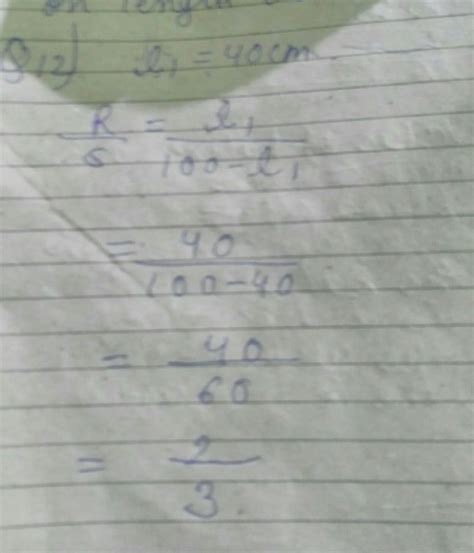 on length
Q12) l₁ = 40cm
R/S = l₁/100-l₁
= 40/100-40
= 40/60
= 2/3